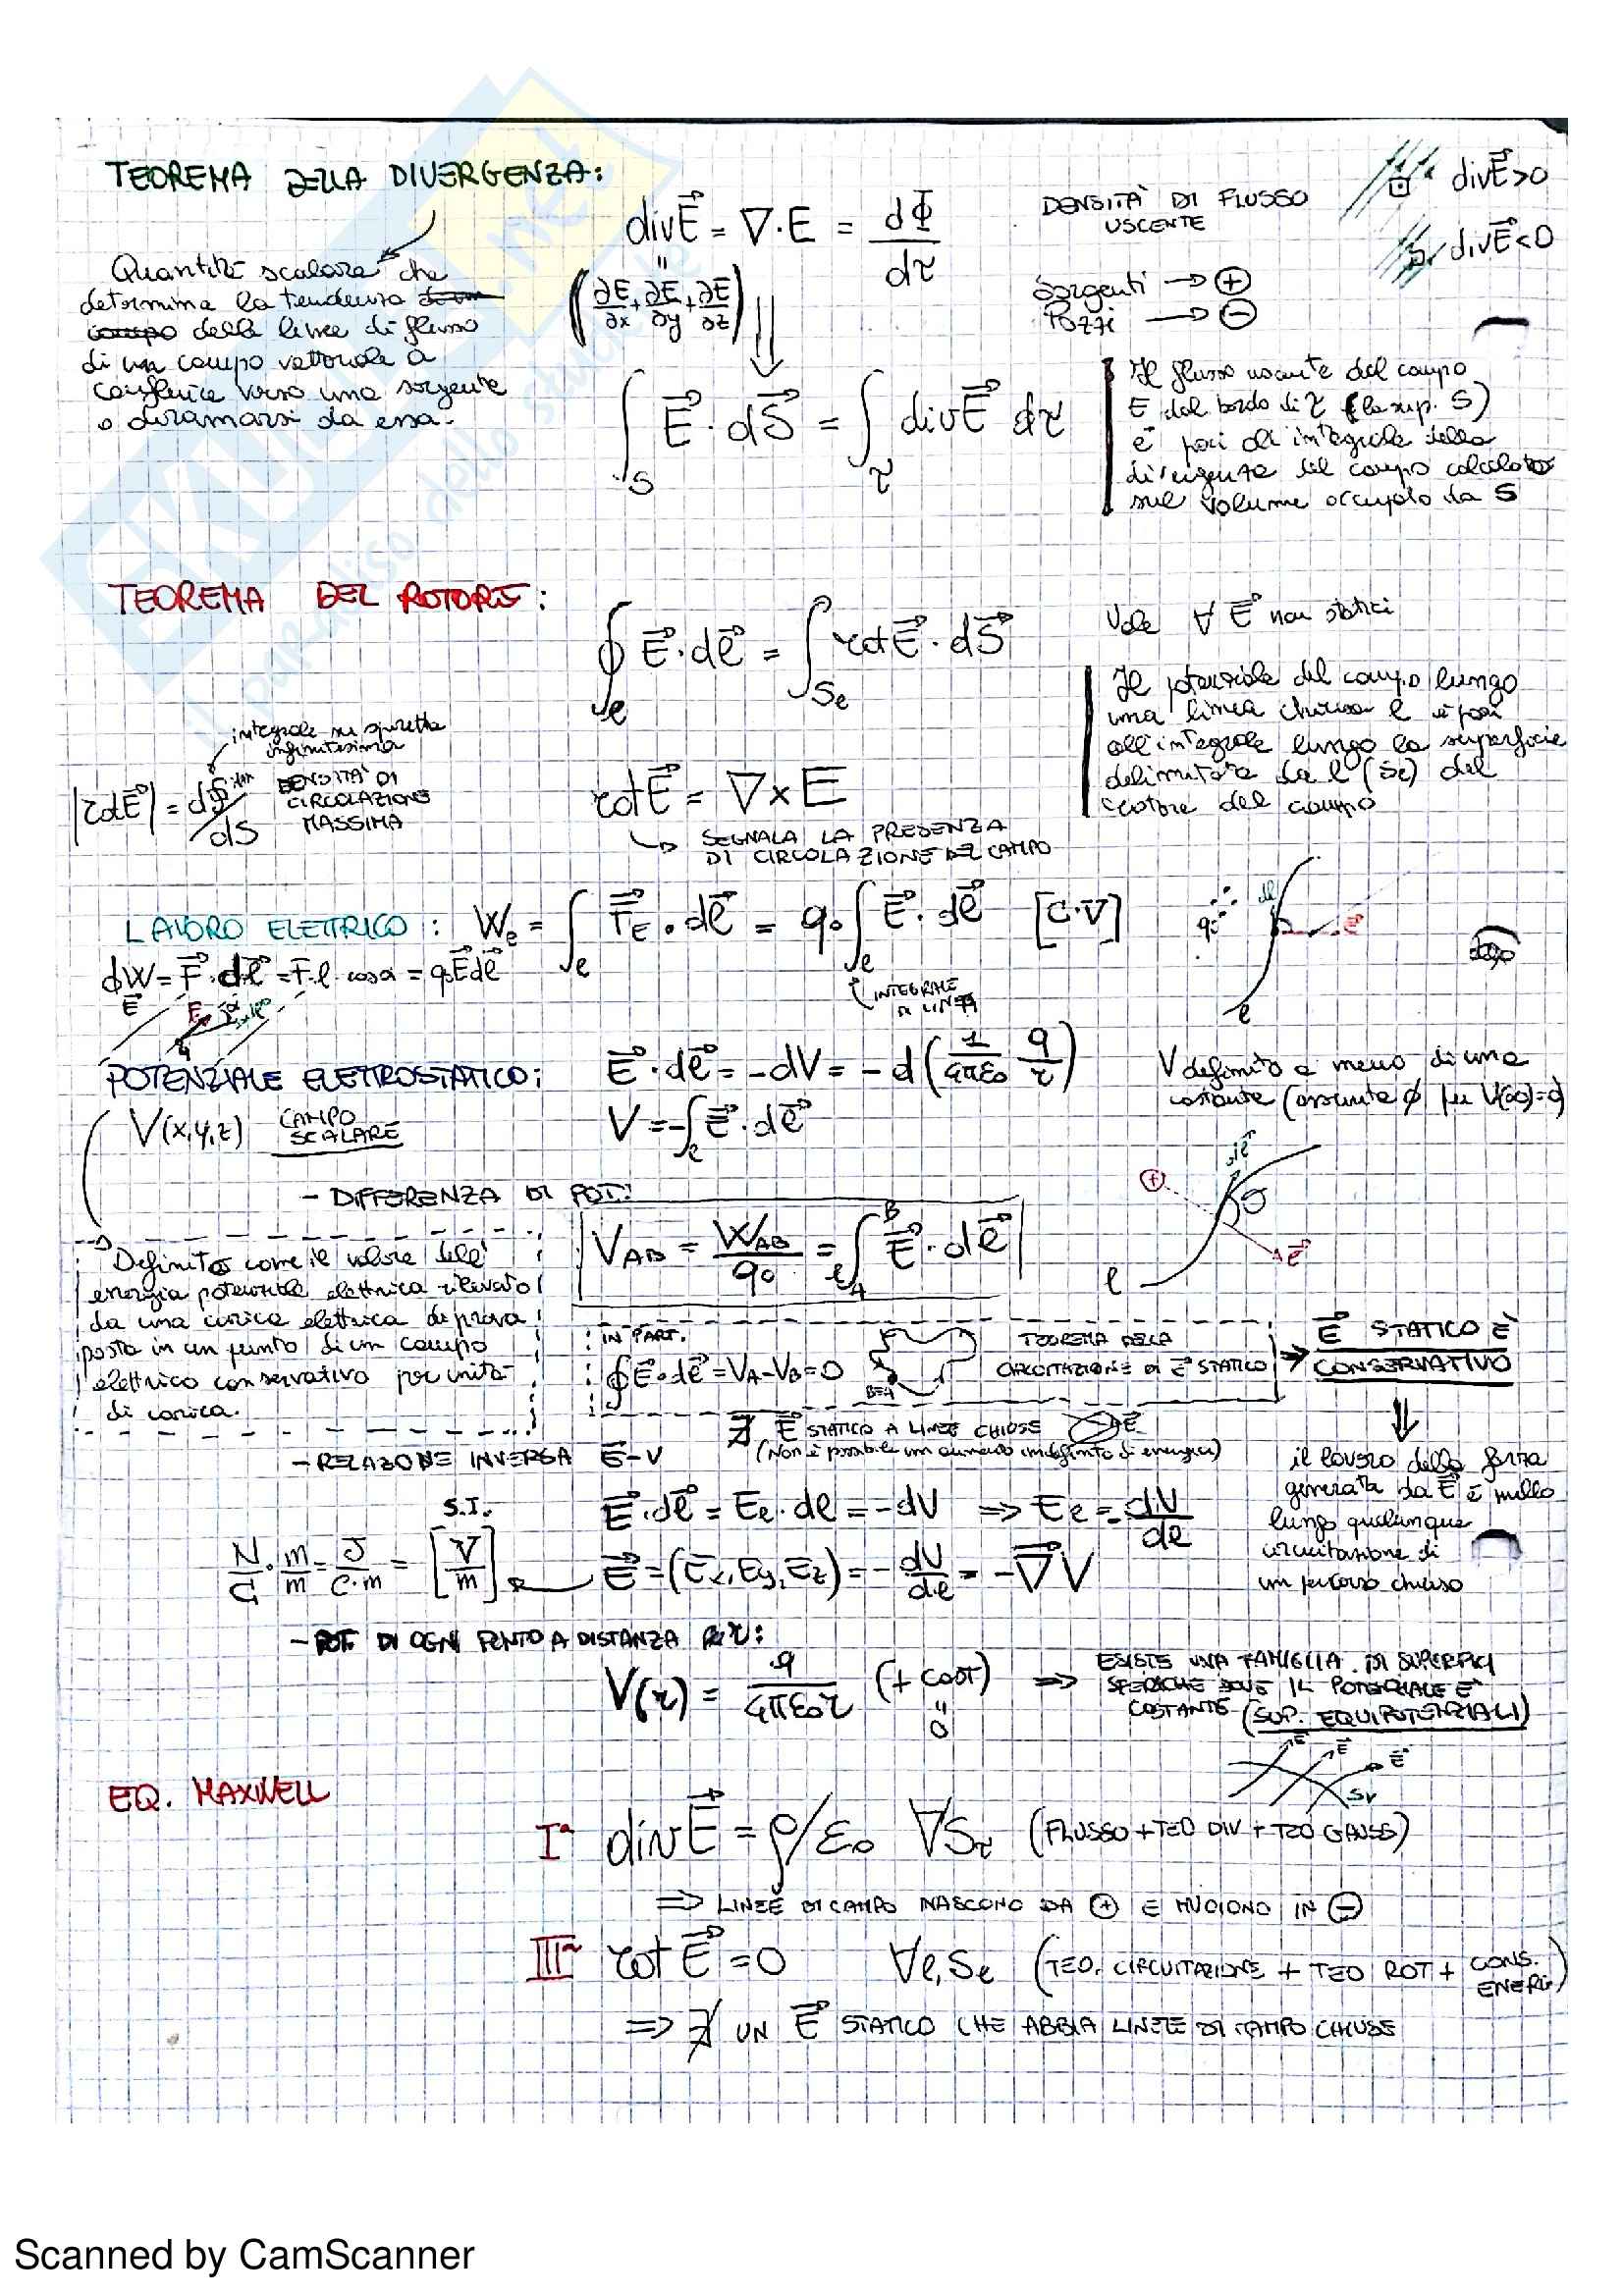 TEOREMA DELLA DIVERGENZA:
div E⃗ = ∇·E = dΦ/dτ
DENSITÀ DI FLUSSO
USCENTE
div E⃗ > 0
div E⃗ < 0
Quantità scalare che
determina la tendenza
della linee di flusso
di un campo vettoriale a
confluire verso una sorgente
o diramarsi da essa.
(∂E/∂x + ∂E/∂y + ∂E/∂z)
Sorgenti → ⊕
Pozzi → ⊖
∫_S E⃗ · dS⃗ = ∫_τ div E⃗ dτ
Il flusso uscente del campo
E dal bordo di τ (la sup. S)
è pari all'integrale della
divergenza del campo calcolato
sul volume occupato da S
TEOREMA DEL ROTORE:
∮_l E⃗ · dl⃗ = ∫_Sl rot E⃗ · dS⃗
Vale ∀ E⃗ non statici
Il potenziale del campo lungo
una linea chiusa l è pari
all'integrale lungo la superficie
delimitata da l (Sl) del
rotore del campo
integrale su spiretta
infinitesima
|rot E⃗| =
dS
DENSITÀ DI
CIRCOLAZIONE
MASSIMA
rot E⃗ = ∇ × E
↳ SEGNALA LA PRESENZA
DI CIRCOLAZIONE DEL CAMPO
LAVORO ELETTRICO: We = ∫_l F⃗E · dl⃗ = q₀ ∫_l E⃗ · dl⃗ [C·V]
INTEGRALE
DI LINEA
dW = F⃗ · dl⃗ = F·l·cosα = q₀E⃗dl⃗
POTENZIALE ELETTROSTATICO:
E⃗ · dl⃗ = -dV = -d(1/4πε₀ q/r)
V definito a meno di una
costante (assunta ∅ per V(∞)=0)
V(x,y,z) CAMPO
SCALARE
V = -∫_l E⃗ · dl⃗
- DIFFERENZA DI POT:
V_AB = W_AB/q₀ = ∫_A^B E⃗ · dl⃗
Definito come il valore dell'
energia potenziale elettrica rilevato
da una carica elettrica di prova
posta in un punto di un campo
elettrico conservativo per unità
di carica.
IN PART.
∮ E⃗ · dl⃗ = V_A - V_B = 0
B≡A
TEOREMA DELLA
CIRCUITAZIONE DI E⃗ STATICO
⇒ E⃗ STATICO È
CONSERVATIVO
∄ E⃗ STATICO A LINEE CHIUSE
(Non è possibile un aumento indefinito di energia)
il lavoro della forza
generata da E⃗ è nullo
lungo qualunque
circuitazione di
un percorso chiuso
- RELAZIONE INVERSA E⃗-V
E⃗ · dl⃗ = El · dl = -dV ⇒ El = -dV/dl
S.I.
N/C · m/m = J/C·m = [V/m]
E⃗ = (Ex, Ey, Ez) = -dV/dl = -∇⃗V
- POT. DI OGNI PUNTO A DISTANZA r:
V(r) = q/4πε₀r (+ cost)
0
⇒ ESISTE UNA FAMIGLIA DI SUPERFICI
SFERICHE DOVE IL POTENZIALE È
COSTANTE (SUP. EQUIPOTENZIALI)
EQ. MAXWELL
Iª div E⃗ = ρ/ε₀ ∀Sτ (FLUSSO + TEO DIV + TEO GAUSS)
⇒ LINEE DI CAMPO NASCONO DA ⊕ E MUOIONO IN ⊖
IIIª rot E⃗ = 0 ∀l, Sl (TEO. CIRCUITAZIONE + TEO ROT + CONS. ENERG)
⇒ ∄ UN E⃗ STATICO CHE ABBIA LINEE DI CAMPO CHIUSE
Scanned by CamScanner